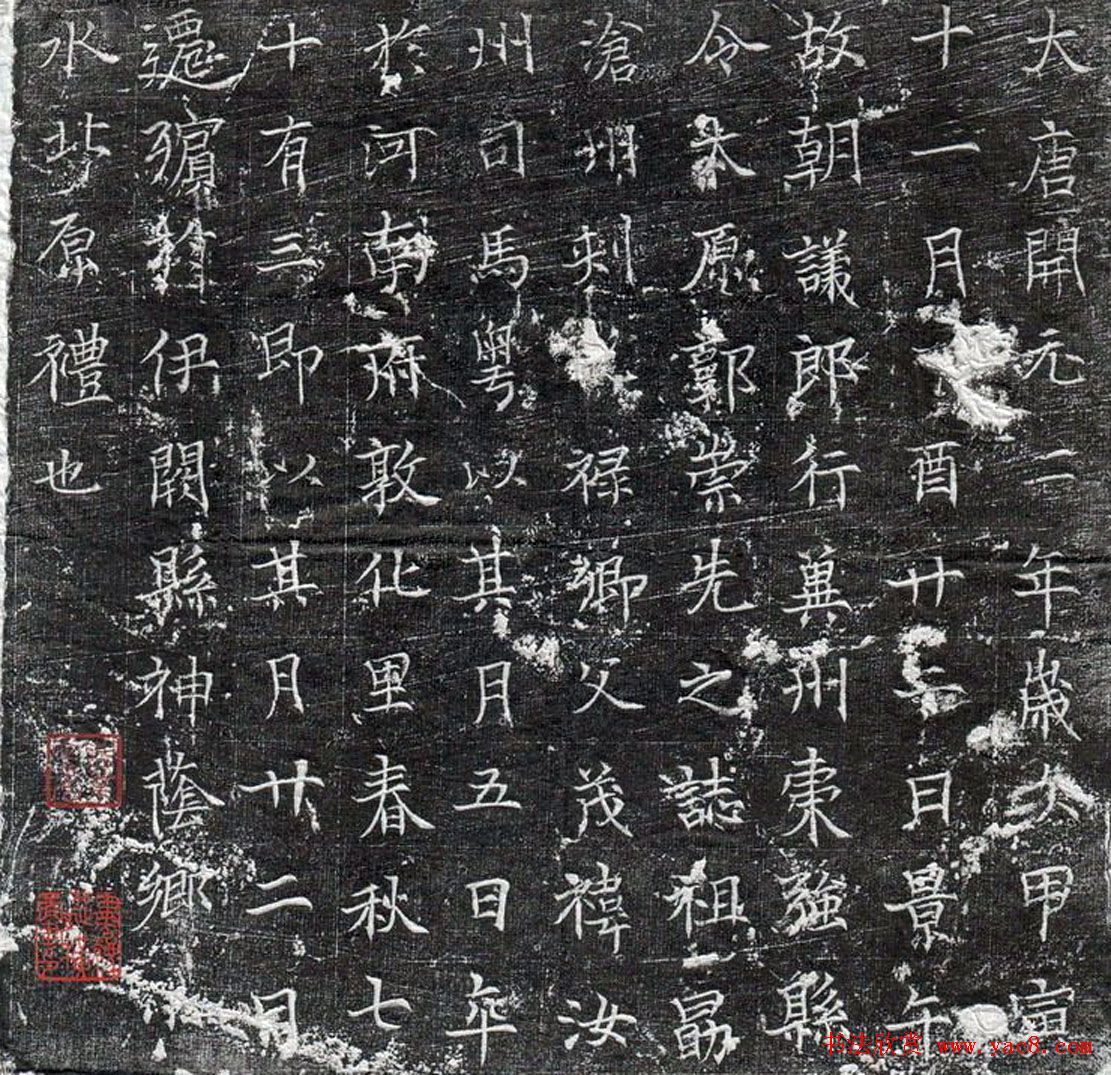 大唐開元二年歲次甲寅
十二月丁酉廿二日景午
故朝議郎行冀州棗強縣
令太原郭崇先之誌祖勗
滄州刺史祿卿父茂禕汝
州司馬粤以其月五日卒
於河南府敦化里春秋七
十有三即以其月廿二日
遷殯於伊闕縣神蔭鄉
水北原禮也
书法欣赏 www.yac8.com